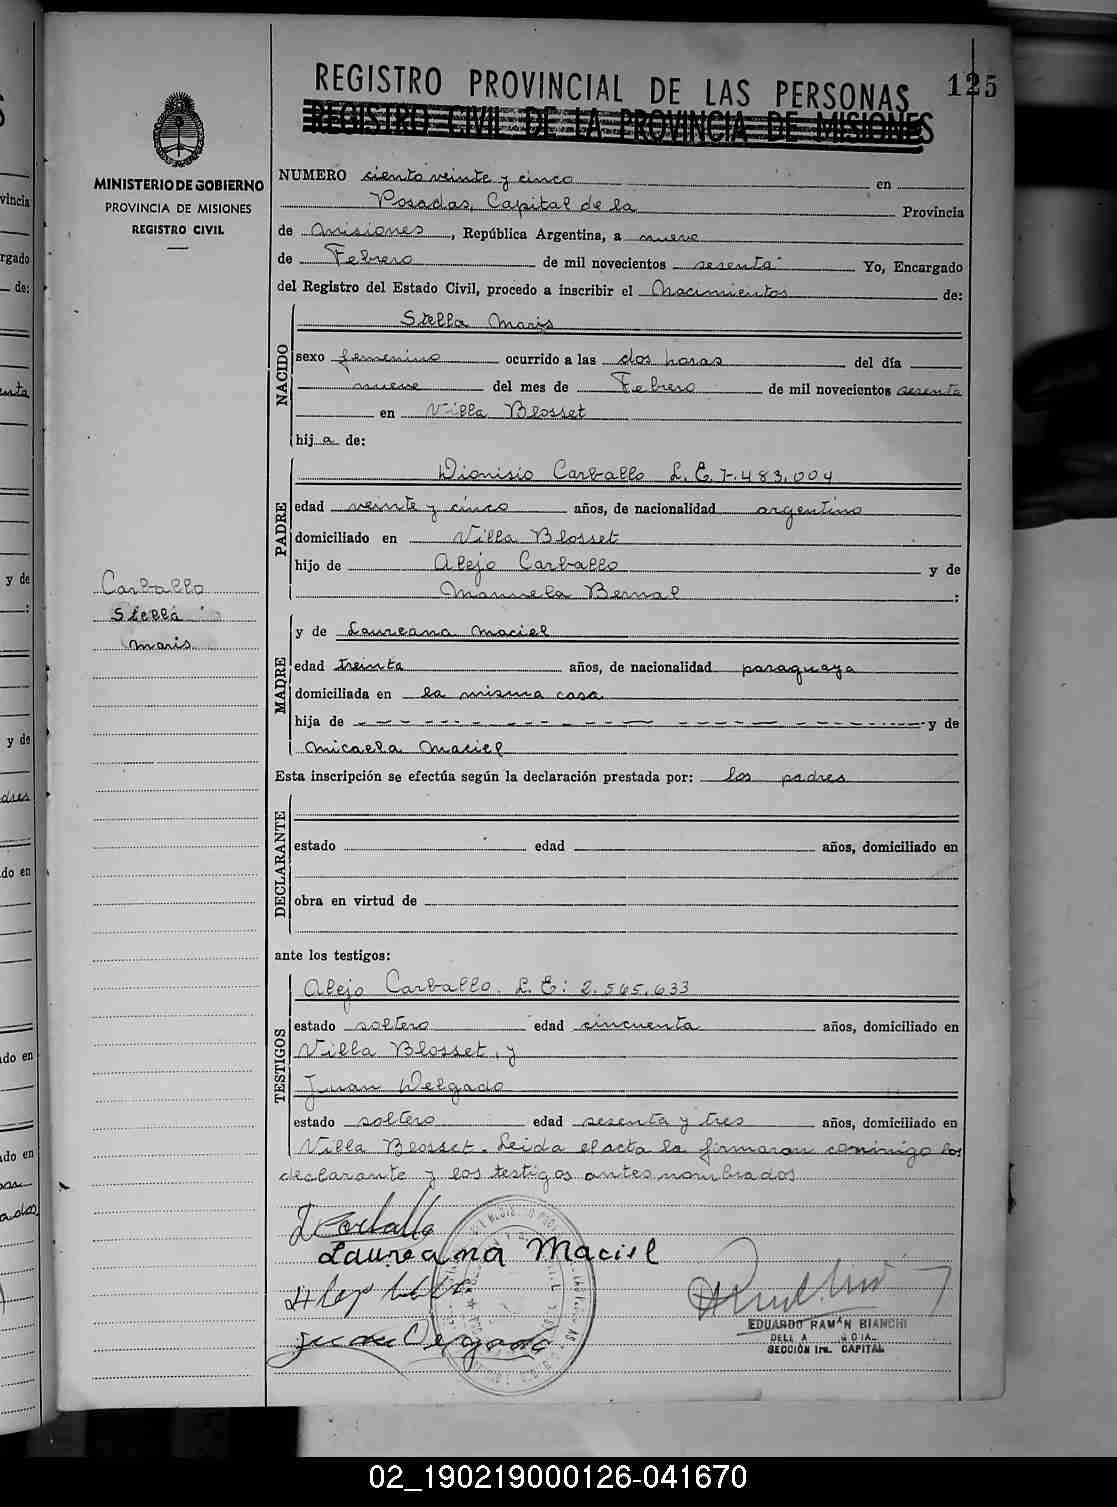 125
REGISTRO PROVINCIAL DE LAS PERSONAS
REGISTRO CIVIL DE LA PROVINCIA DE MISIONES
MINISTERIO DE GOBIERNO
PROVINCIA DE MISIONES
REGISTRO CIVIL
NUMERO ciento veinte y cinco en
Posadas, Capital de la Provincia
de Misiones, República Argentina, a nueve
de Febrero de mil novecientos sesenta Yo, Encargado
del Registro del Estado Civil, procedo a inscribir el Nacimientos de:
NACIDO
Stella Maris
sexo femenino ocurrido a las dos horas del día
nueve del mes de Febrero de mil novecientos sesenta
en Villa Blosset
hija de:
PADRE
Dionisio Carballo L. E. 7.483.004
edad veinte y cinco años, de nacionalidad argentino
domiciliado en Villa Blosset
hijo de Alejo Carballo y de
Manuela Bernal :
Carballo
Stella
Maris
MADRE
y de Laureana Maciel
edad treinta años, de nacionalidad paraguaya
domiciliada en la misma casa
hija de y de
Micaela Maciel
Esta inscripción se efectúa según la declaración prestada por: los padres
DECLARANTE
estado edad años, domiciliado en
obra en virtud de
ante los testigos:
TESTIGOS
Alejo Carballo. L. E: 2.565.633
estado soltero edad cincuenta años, domiciliado en
Villa Blosset, y
Juan Delgado
estado soltero edad sesenta y tres años, domiciliado en
Villa Blosset. Leida el acta la firmaron conmigo los
declarante y los testigos antes nombrados
D Carballo
Laureana Maciel
Juan Delgado
EDUARDO RAMÓN BIANCHI
SECCIÓN 1ra. CAPITAL
02_190219000126-041670